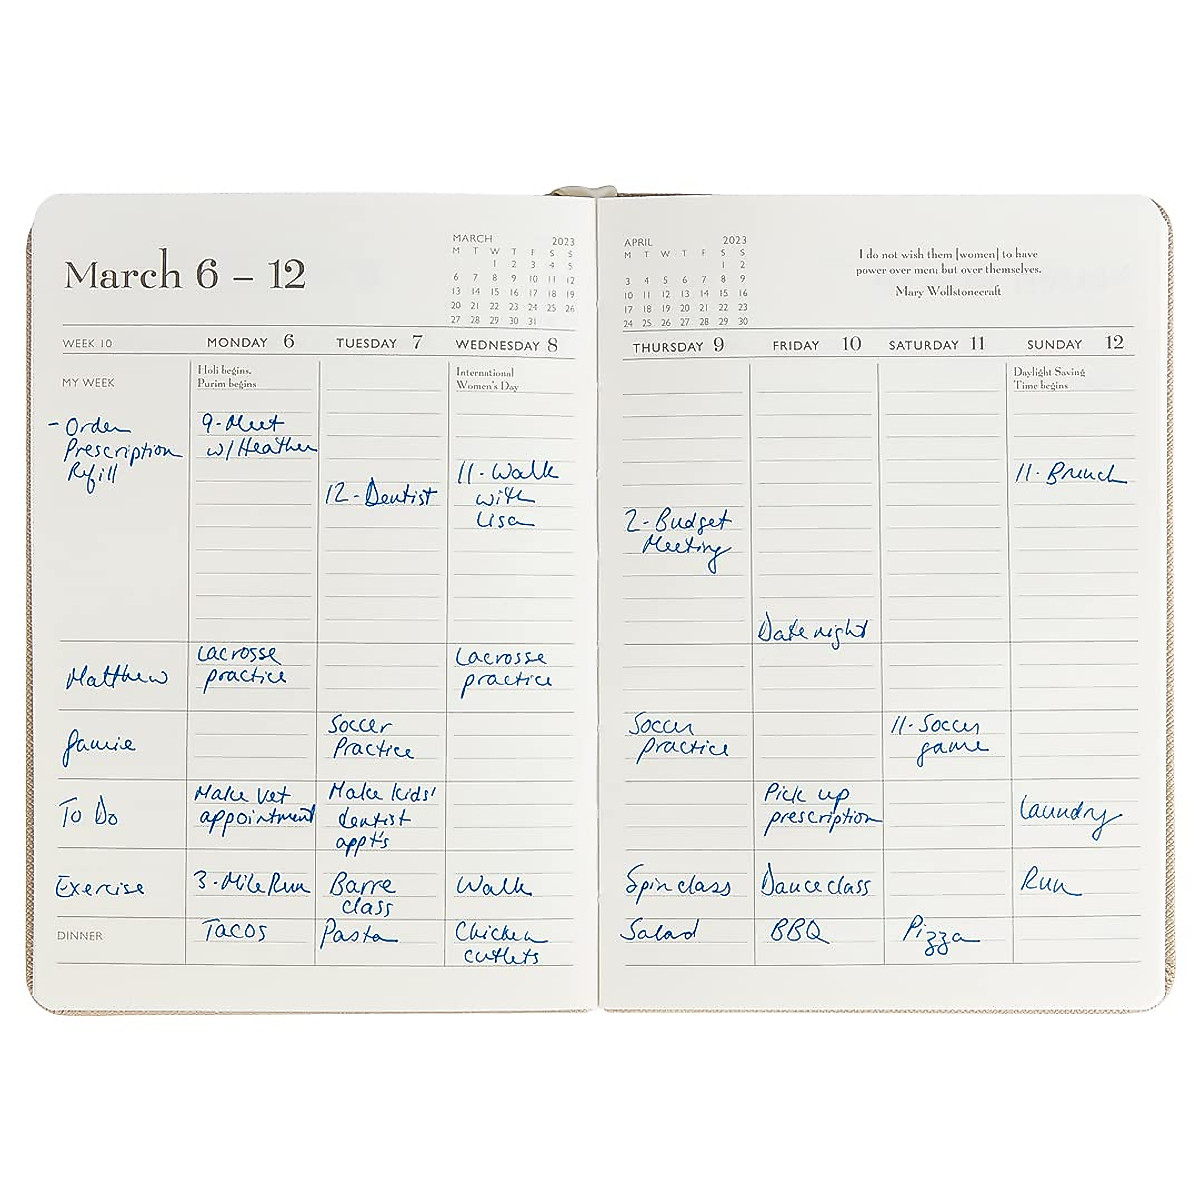 March 6 – 12
MARCH 2023
M T W T F S S
1 2 3 4 5
6 7 8 9 10 11 12
13 14 15 16 17 18 19
20 21 22 23 24 25 26
27 28 29 30 31
WEEK 10
MONDAY 6
TUESDAY 7
WEDNESDAY 8
MY WEEK
Holi begins,
Purim begins
International
Women's Day
- Order
Prescription
Refill
9-Meet
w/Heather
12-Dentist
11-Walk
with
Lisa
Matthew
Lacrosse
practice
Lacrosse
practice
Jamie
Soccer
Practice
To Do
Make vet
appointment
Make kids'
dentist
appt's
Exercise
3-Mile Run
Barre
class
Walk
DINNER
Tacos
Pasta
Chicken
cutlets
APRIL 2023
M T W T F S S
1 2
3 4 5 6 7 8 9
10 11 12 13 14 15 16
17 18 19 20 21 22 23
24 25 26 27 28 29 30
I do not wish them [women] to have
power over men; but over themselves.
Mary Wollstonecraft
THURSDAY 9
FRIDAY 10
SATURDAY 11
SUNDAY 12
Daylight Saving
Time begins
2-Budget
Meeting
Date night
11-Brunch
Soccer
practice
11-Soccer
game
Pick up
prescription
Laundry
Spin class
Dance class
Run
Salad
BBQ
Pizza